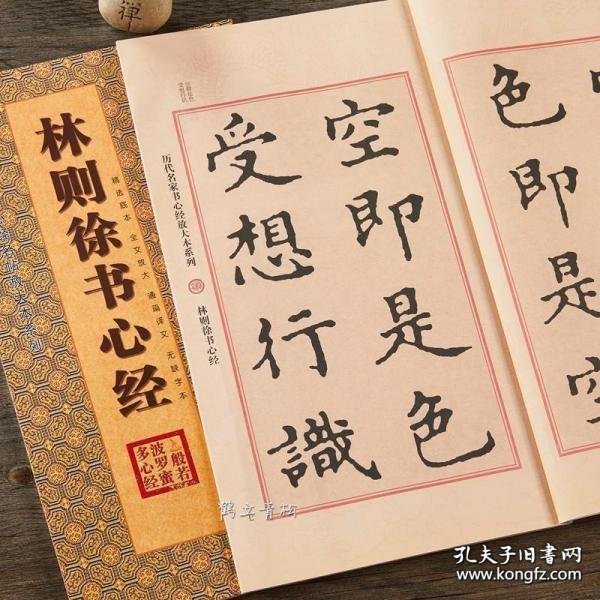 禅
林则徐书心经
精选底本 全文放大 通篇译文 无缺字本
般若
波罗蜜
多心经
色即是空
空即是色
受想行識
空即是色
受想行识
历代名家书心经放大本系列
林则徐书心经
鹤立青松
孔夫子旧书网
www.kongfz.com